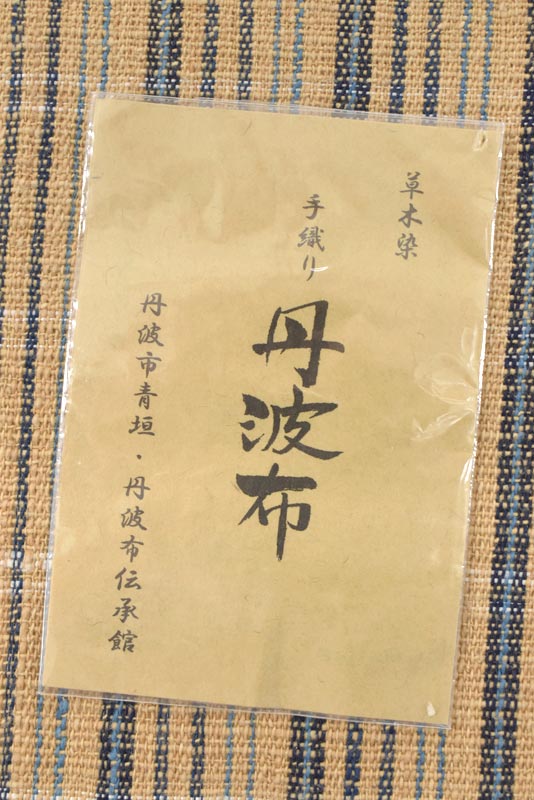 草木染
手織り
丹波布
丹波市青垣・丹波布伝承館